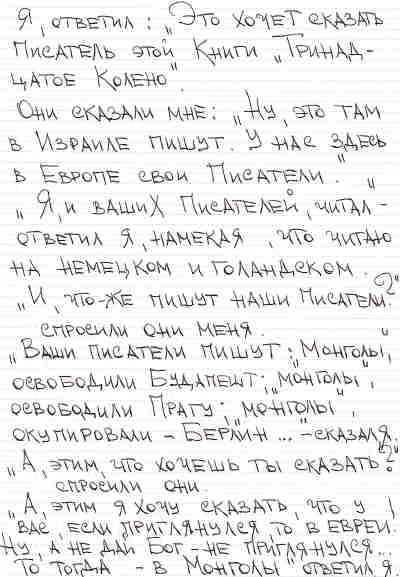 Я, ответил: „Это хочет сказать
писатель этой книги „Тринад-
цатое Колено".
Они сказали мне: „Ну, это там
в Израиле пишут. У нас здесь
в Европе свои писатели."
„Я, и ваших писателей, читал -
ответил я, намекая, что читаю
на немецком и голандском.
„И, что-же пишут наши писатели?"
спросили они меня.
„Ваши писатели пишут: „Монголы",
освободили Будапешт; „монголы",
освободили Прагу; „монголы",
окупировали - Берлин... - сказал я.
„А, этим, что хочешь ты сказать?"
спросили они.
„А, этим я хочу сказать, что у
вас, если приглянулся, то в евреи.
Ну, а не дай Бог, - не приглянулся...
то тогда - в монголы" ответил я.